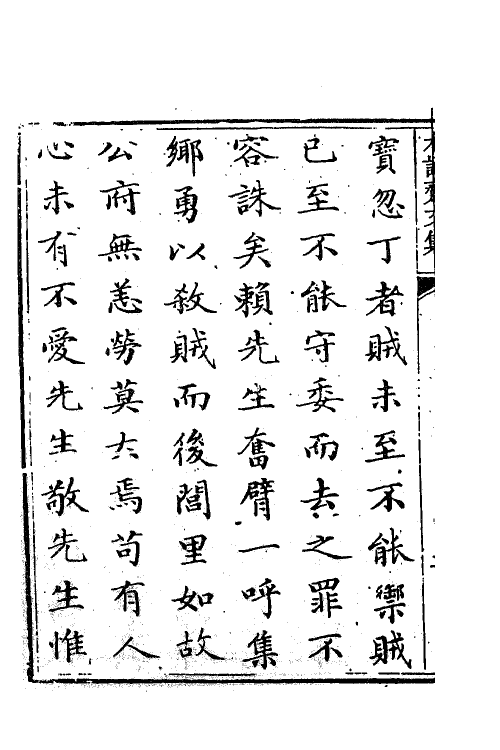 寶忽丁者賊未至不能禦賊
已至不能守委而去之罪不
容誅矣賴先生奮臂一呼集
鄉勇以殺賊而後閭里如故
公府無恙勞莫大焉茍有人
心未有不愛先生敬先生惟